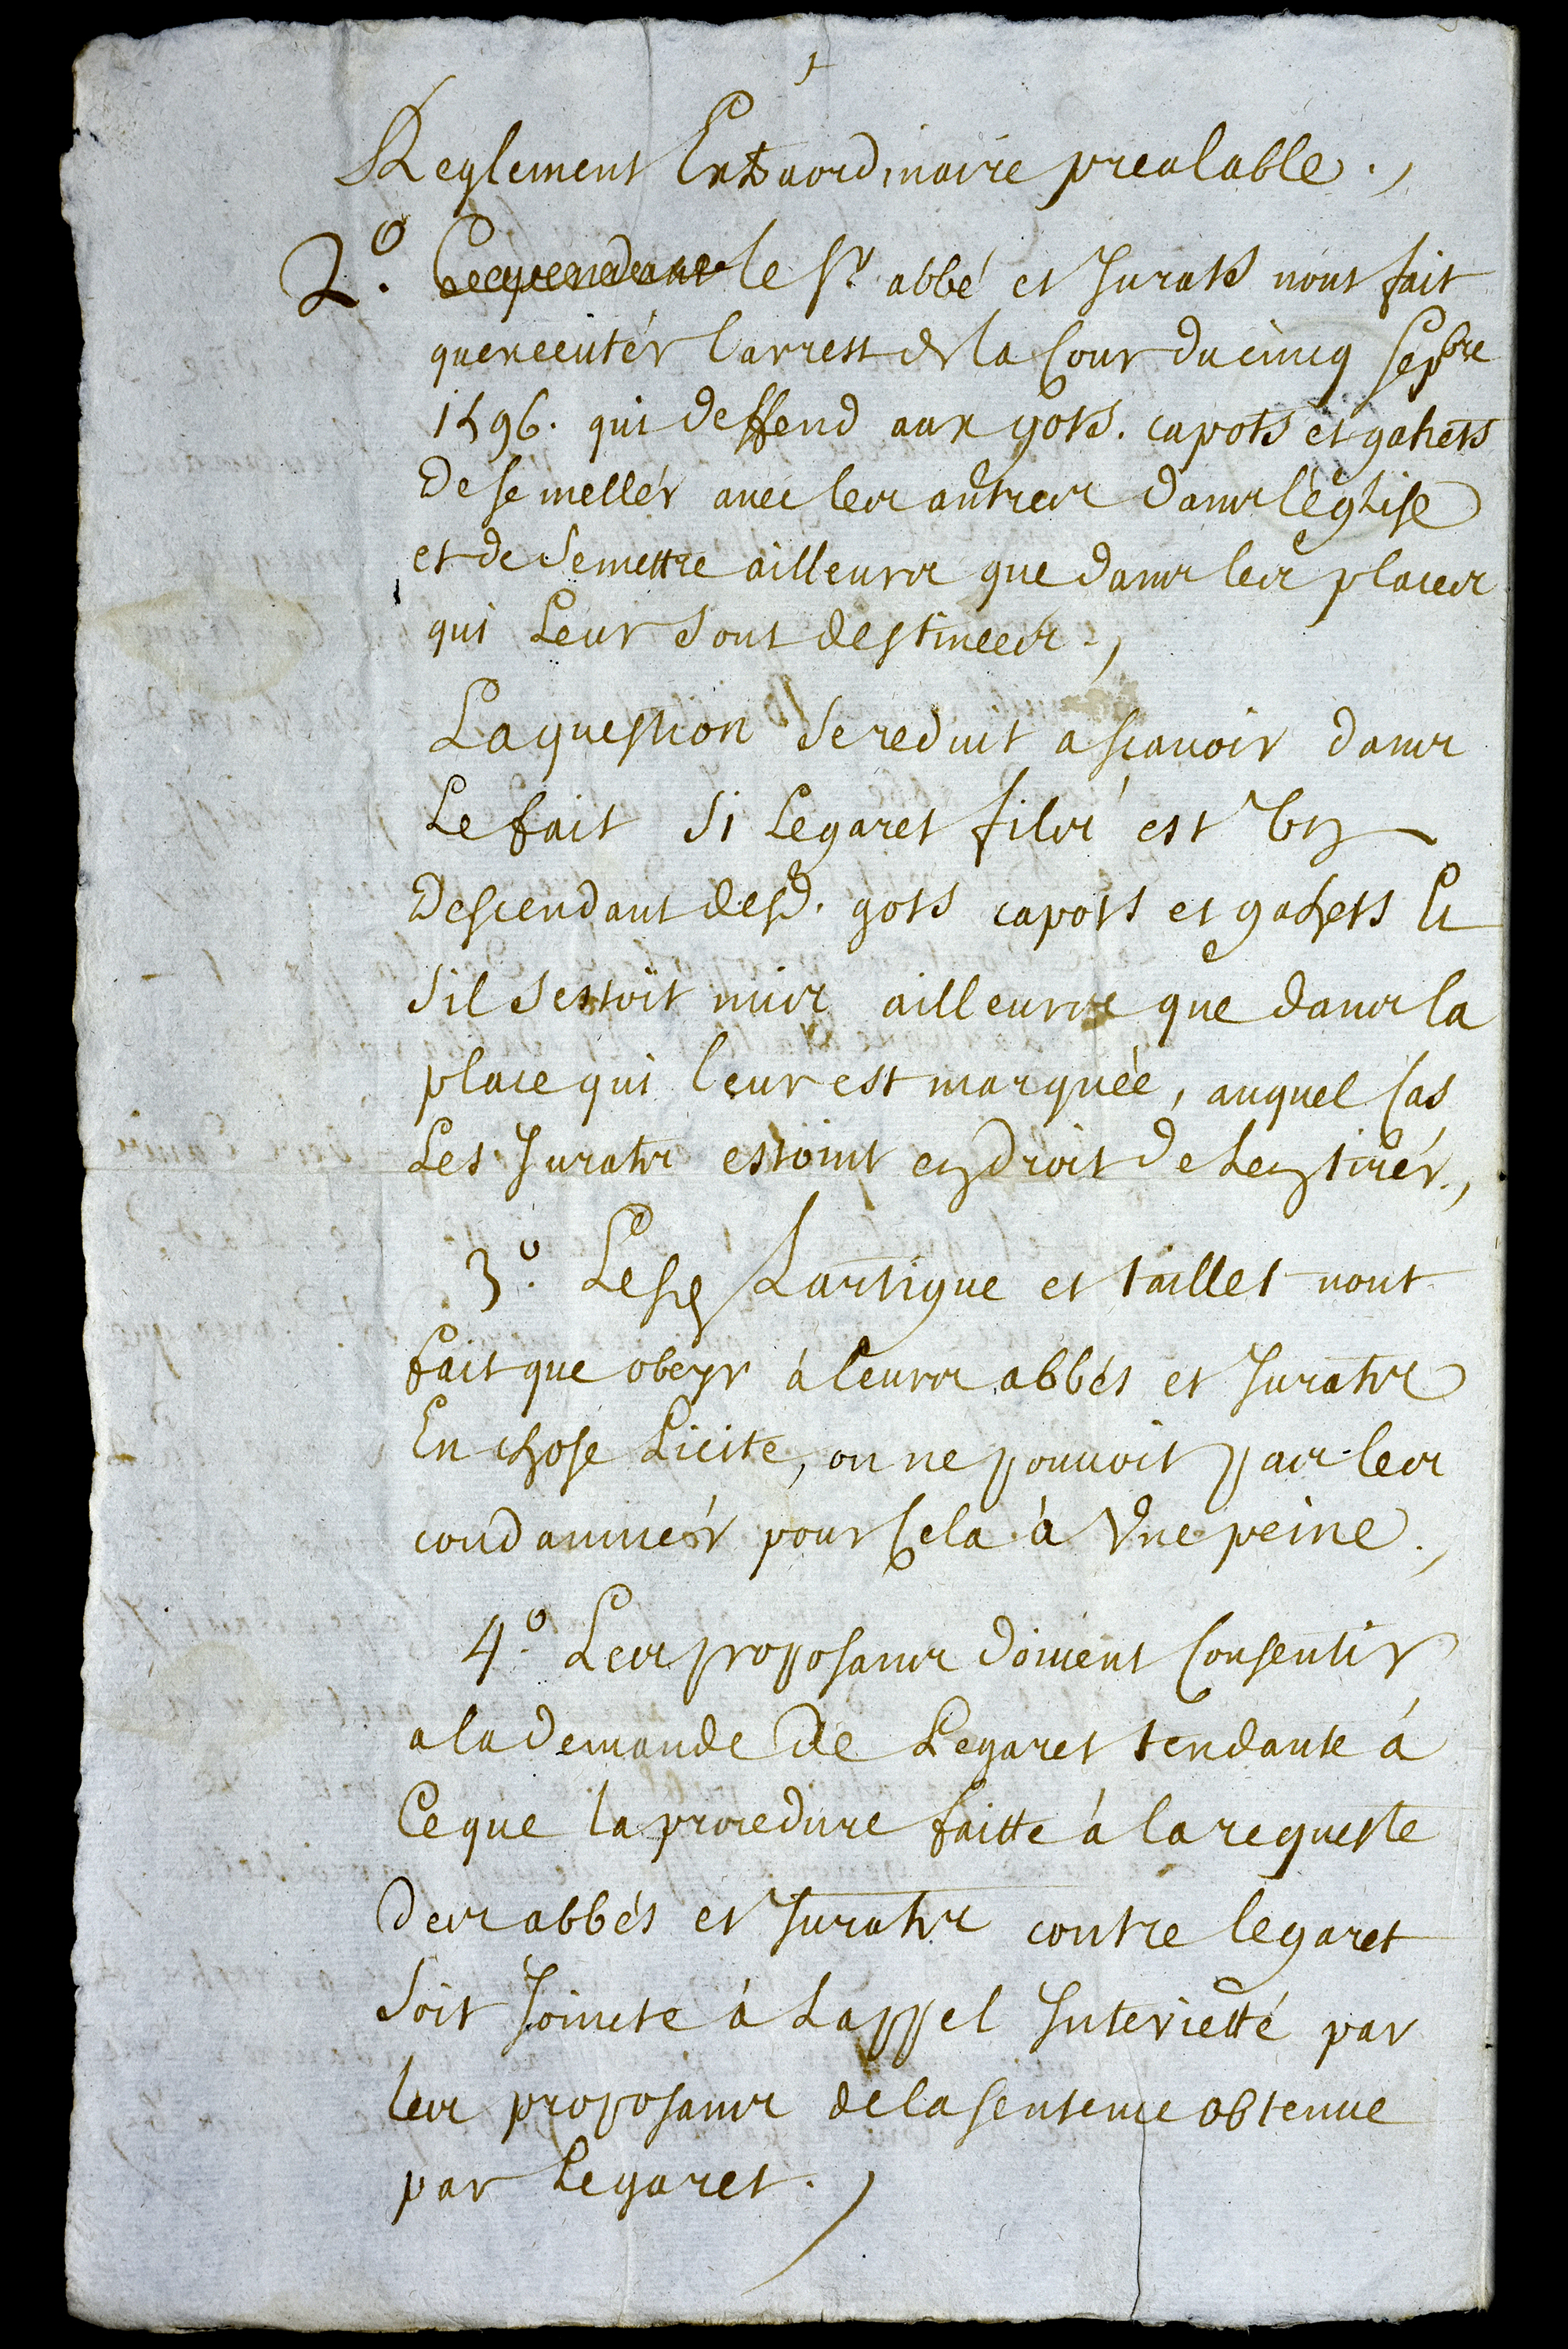 Reglement Extraordinaire prealable.,
2.º Cependant le Sr. abbé et Jurats nont fait
quexecutér larrest de la Cour du cincq Sepbre
1596. qui deffend aux gots. capots et gahets
de se mellér avec les autres dans léglise
et de se mettre ailleurs que dans les places
qui Leur sont destinees.,
La question se reduit a scavoir dans
Le fait si Legaret fils est un
Descendant desd. gots capots et gahets Et
sil sestoit mis ailleurs que dans la
place qui leur est marquée, auquel Cas
Les Jurats estoint en droit de Len tirér.,
3.º Lesd Lartigue et taillet nont
fait que obeyr á leurs abbés et Jurats
En chose Licite, on ne pouvoit pas les
condamnér pour Cela á Une peine.,
4.º Les proposans doivent Consentir
a la demande de Legaret tendante á
Ce que la procedure faitte á la requeste
des abbés et Jurats contre legaret
soit Joincte á Lappel Interietté par
les proposans de la sentence obtenue
par Legaret.,